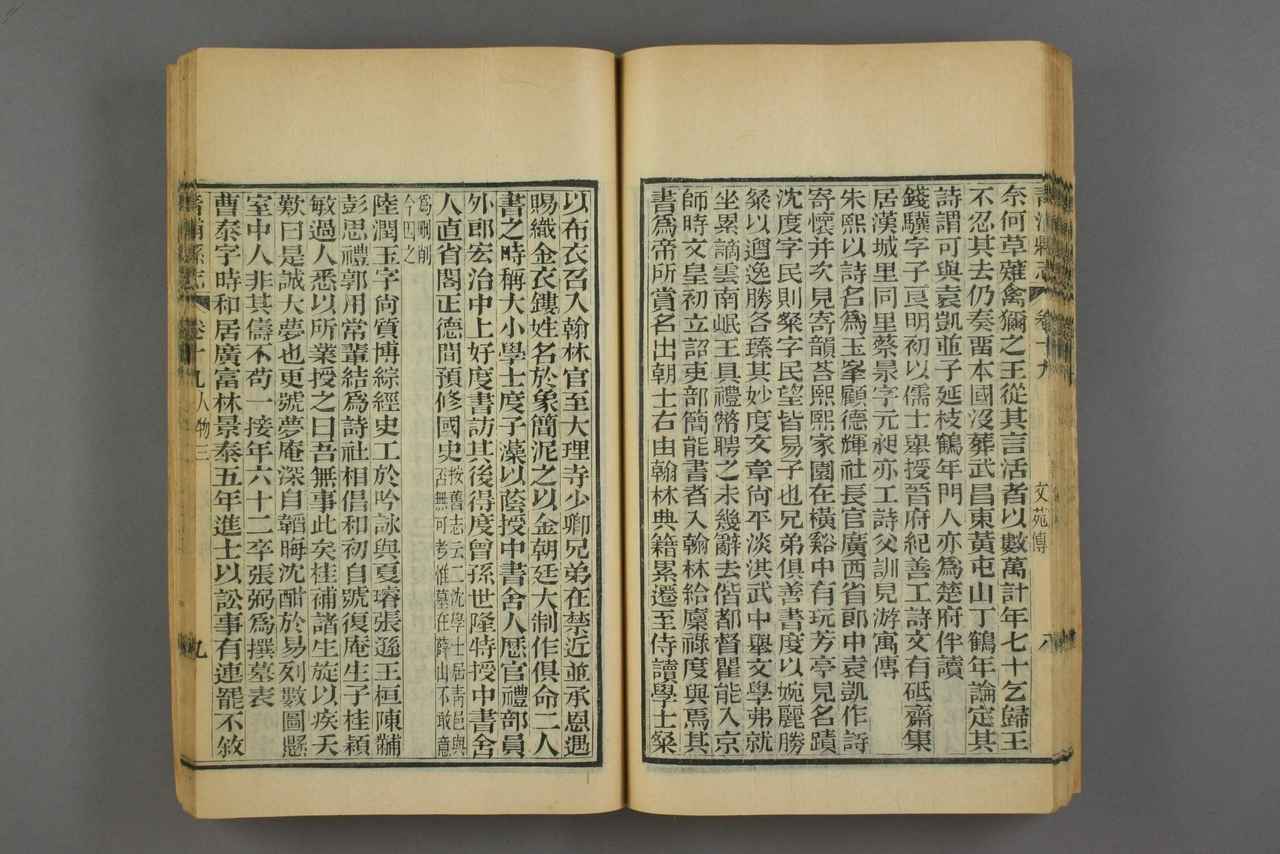 青浦縣志
卷十九
文苑傳
八
奈何草薙禽獮之王從其言活者以數萬計年七十乞歸王
不忍其去仍奏畱本國沒葬武昌東黃屯山丁鶴年論定其
詩謂可與袁凱並子延枝鶴年門人亦爲楚府伴讀
錢驥字子良明初以儒士舉授晉府紀善工詩文有砥齋集
居漢城里同里蔡景字元昶亦工詩父訓見游寓傳
朱熙以詩名爲玉峯顧德輝社長官廣西省郎中袁凱作詩
寄懷并次見寄韻荅熙熙家園在橫谿中有玩芳亭見名蹟
沈度字民則粲字民望皆易子也兄弟俱善書度以婉麗勝
粲以遒逸勝各臻其妙度文章尙平淡洪武中舉文學弗就
坐累謫雲南岷王具禮幣聘之未幾辭去偕都督瞿能入京
師時文皇初立詔吏部簡能書者入翰林給廩祿度與焉其
書爲帝所賞名出朝士右由翰林典籍累遷至侍讀學士粲
以布衣召入翰林官至大理寺少卿兄弟在禁近並承恩遇
賜織金衣鏤姓名於象簡泥之以金朝廷大制作俱命二人
書之時稱大小學士度子藻以蔭授中書舍人歷官禮部員
外郎宏治中上好度書訪其後得度曾孫世隆特授中書舍
人直省閣正德間預修國史按舊志云二沈學士居靑邑與
否無可考惟墓在薛山不敢意
爲刪削
今四之
陸潤玉字尙質博綜經史工於吟詠與夏璿張遜王桓陳黼
彭思禮郭用常輩結爲詩社相倡和初自號復庵生子桂穎
敏過人悉以所業授之曰吾無事此矣桂補諸生旋以疾夭
歎曰是誠大夢也更號夢庵深自韜晦沈酣於易列數圖懸
室中人非其儔不苟一接年六十二卒張弼爲撰墓表
曹泰字時和居廣富林景泰五年進士以訟事有連罷不敘
青浦縣志
卷十九人物三
九